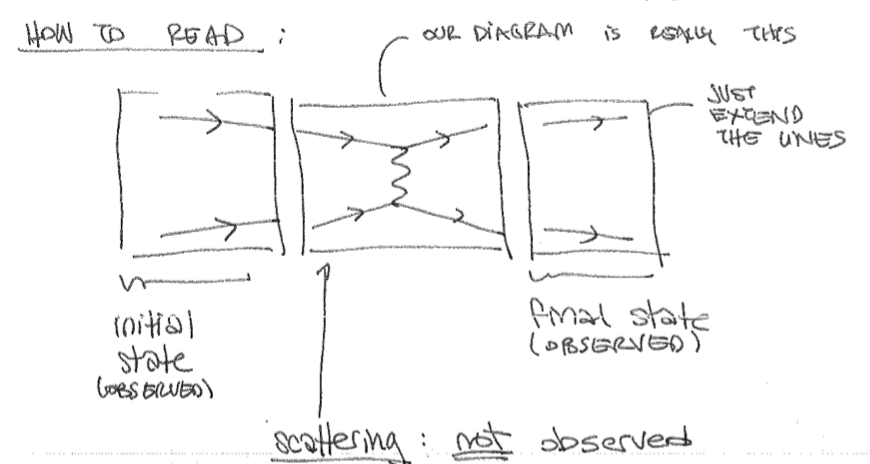 HOW TO READ :
OUR DIAGRAM is REALLY THIS
JUST
EXTEND
THE LINES
initial
state
(OBSERVED)
final state
(OBSERVED)
scattering : not observed